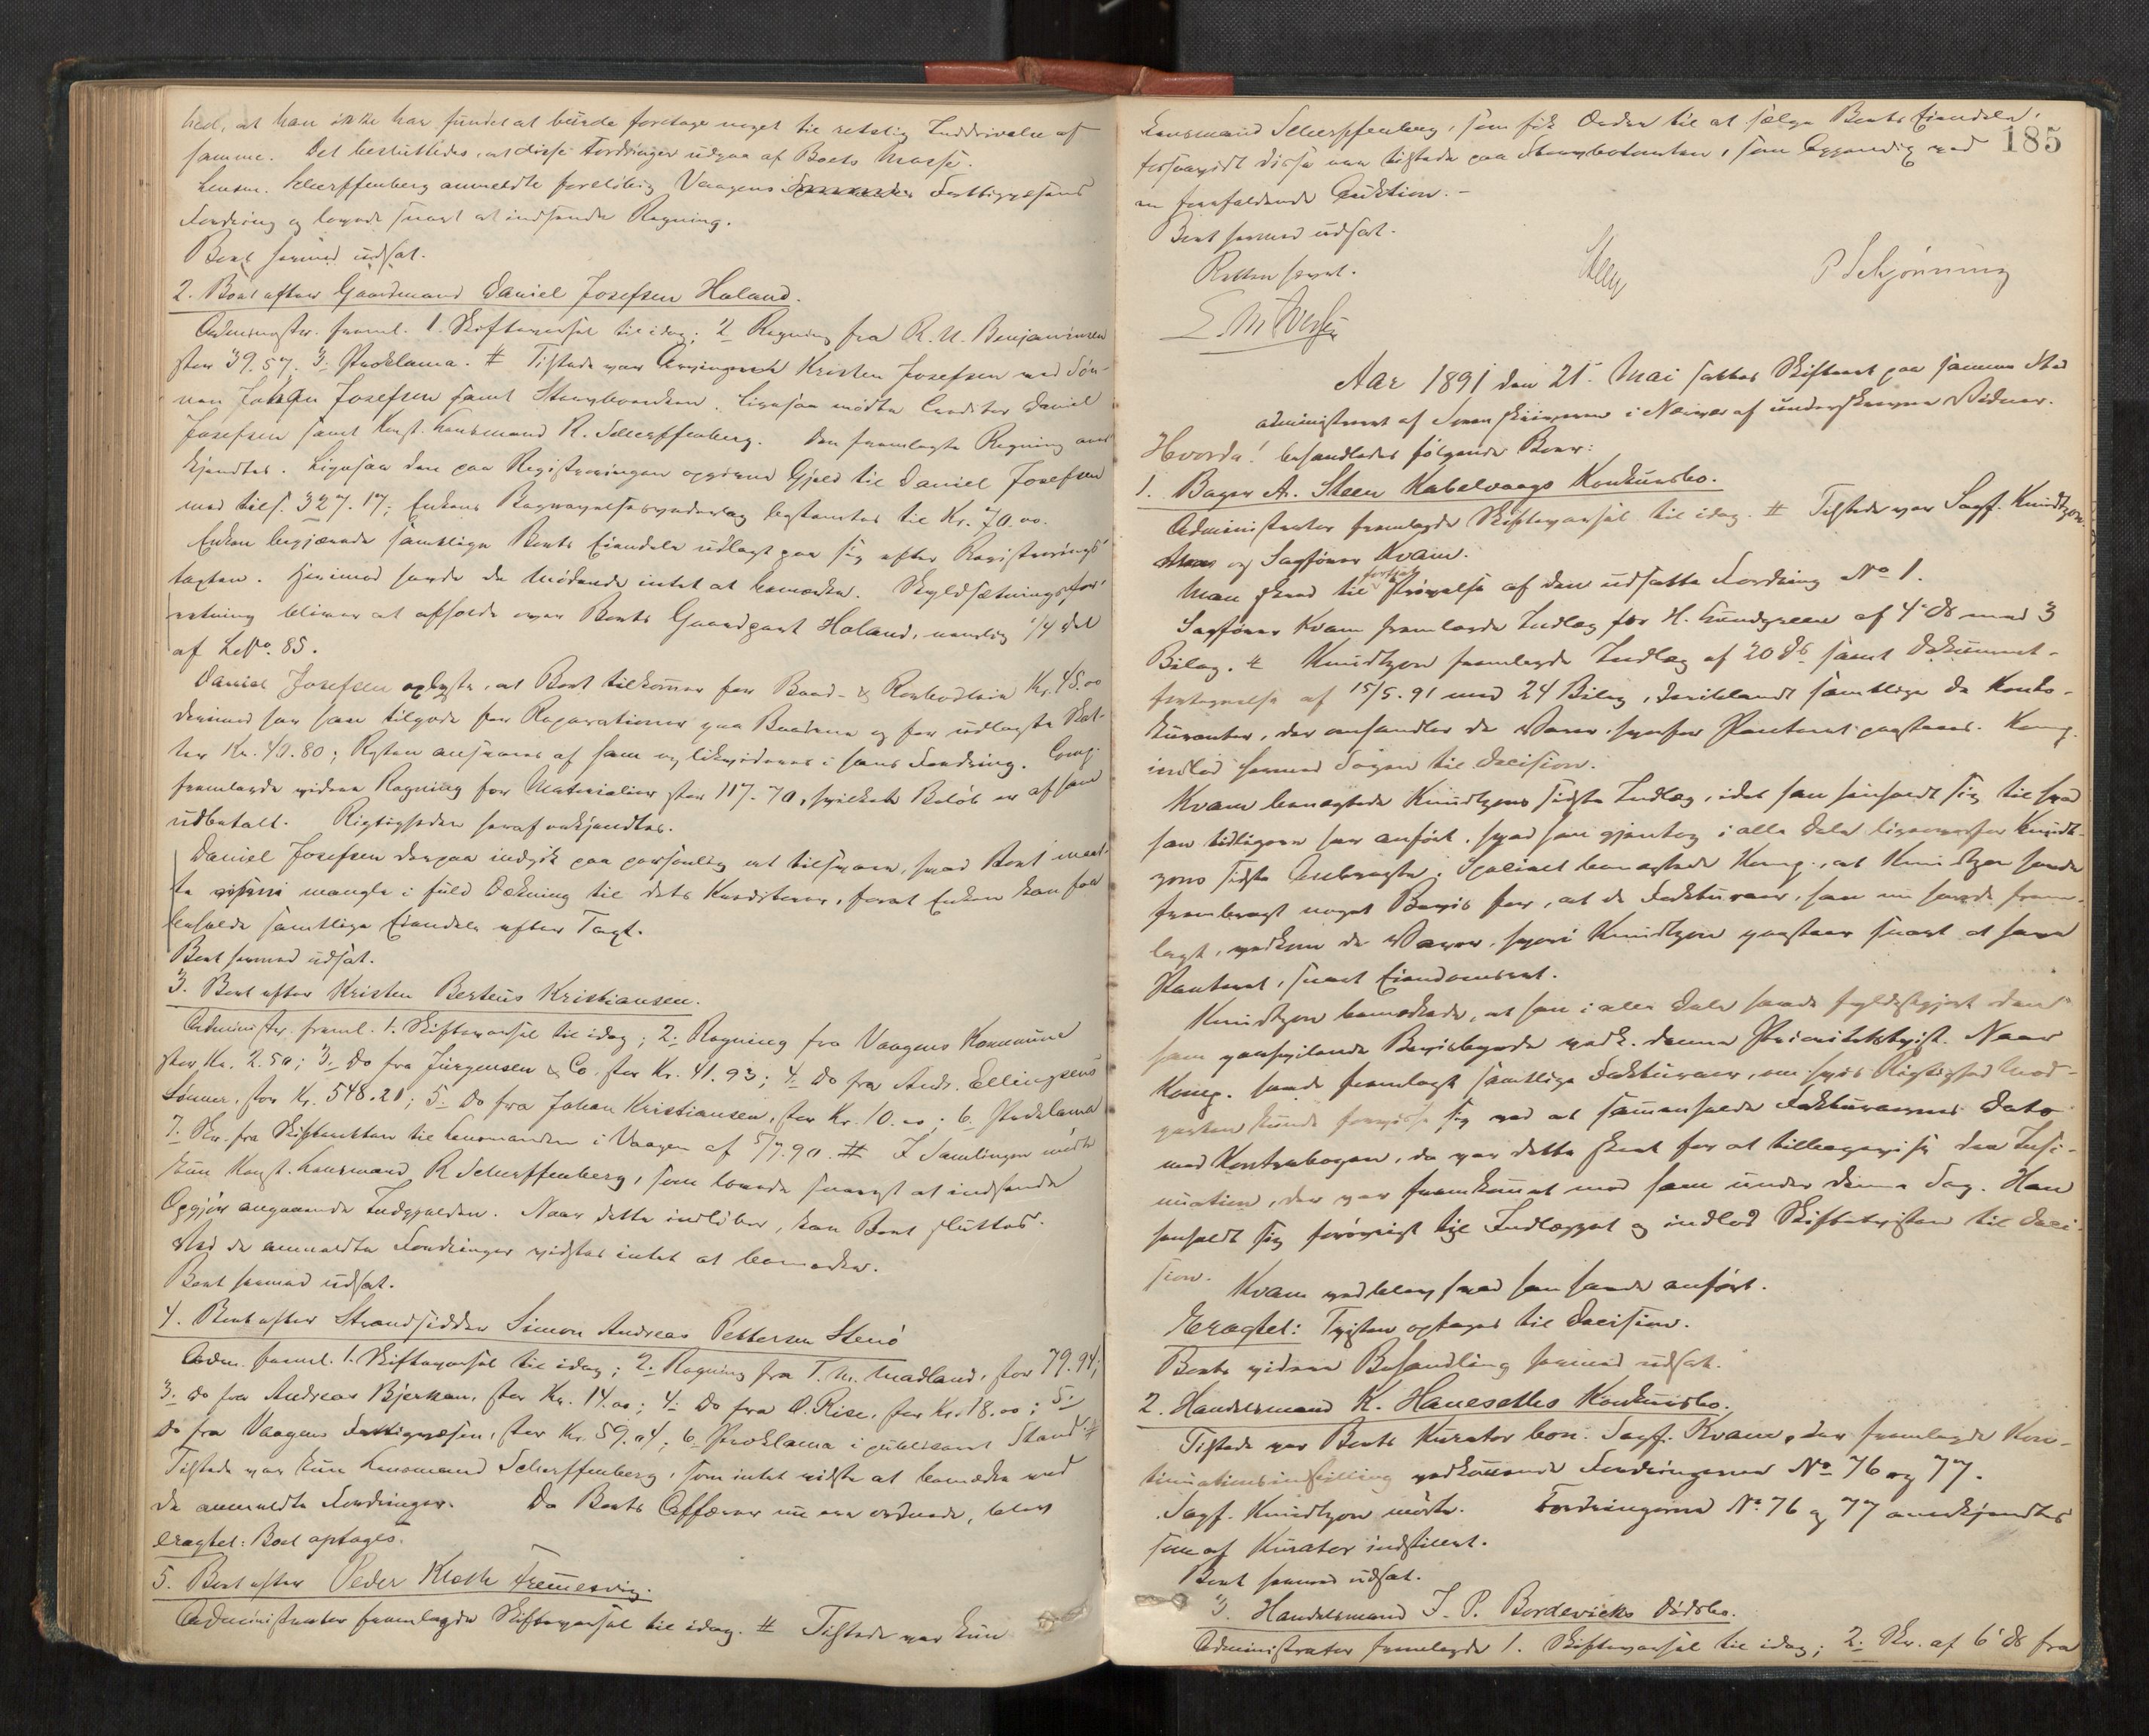 hed, at han ikke har fundet at burde foretage noget til retslig Inddrivelse af
samme. Det besluttedes, at disse Fordringer udgaa af Boets Masse.
Lensm. Scherpffenberg anmeldte foreløbig Vaagens Fattigvæsens
Fordring og lovede snart at indsende Regning.
Boet hermed udsat.
2. Boet efter Gaardmand Daniel Josefsen Høland.
Adminstr. freml. 1. Skiftevarsel til idag; 2 Regning fra R. U. Benjaminsen
stor 39.57. 3. Proklama. # Tilstede var Kristen Josefsen med Søn-
nen Josefsen samt Ligesaa mødte Creditor Daniel
Josefsen samt Konst. Lensmand R. Scherpffenberg. Den fremlagte Regning aner-
kjendtes. Ligesaa den paa Registreringen opgivne Gjeld til Daniel Josefsen
med tils. 327.17; Enkens Begravelsesvederlag bestemtes til Kr. 70.00.
Enken begjærede samtlige Boets Eiendele udlagt paa sig efter Registrerings-
taxten. Herimod havde de Mødende intet at bemærke. Skyldsætningsfor-
retning bliver at afholde over Boets Gaardpart Høland, nemlig 1/4 del
af LNo. 85.
Daniel Josefsen oplyste, at Boet tilkommer for Baad- & Rorbodleie Kr. 45.00
derimod har han tilgode for Reparationer paa Baadene og for udlagte Skat-
ter Kr. 42.80; Resten ansvares af ham og likvideres i hans Fordring. Comp.
fremlagde videre Regning for Materialier stor 117.70, hvilket Beløb er af ham
udbetalt. Rigtigheden heraf vedkjendtes.
Daniel Josefsen derpaa indgik paa personlig at tilsvare, hvad Boet maat-
te mangle i fuld Dækning til dets Kreditorer, forat Enken kan faa
beholde samtlige Eiendele efter Taxt.
Boet hermed udsat.
3. Boet efter Kristen Berteus Kristiansen.
Administr. freml. 1. Skiftevarsel til idag; 2. Regning fra Vaagens Kommune
stor Kr. 2.50; 3. Do fra Jürgensen & Co. stor Kr. 41.93; 4. Do fra Andr. Ellingsens
Sønner, stor Kr. 548.21; 5. Do fra Johan Kristiansen, stor Kr. 10.00; 6. Proklama
7. Skr. fra Skifteretten til Lensmanden i Vaagen af 5/7.90. # I Samlingen mødte
kun Konst. Lensmand R Scherpffenberg, som lovede snarest at indsende
Opgjør angaaende Indgjælden. Naar dette indløber, kan Boet sluttes.
Ved de anmeldte Fordringer vidstes intet at bemærke.
Boet hermed udsat.
4. Boet efter Strandsidder Simon Andreas Pettersen Stenø
Adm. freml. 1. Skiftevarsel til idag; 2. Regning fra T. M. Madland, stor 79.94;
3. Do fra Andreas Bjerkan, stor Kr. 14.00; 4. Do fra O. Rise, stor Kr. 18.00; 5.
Do fra Vaagens Fattigvæsen, stor Kr. 59.04; 6. Proklama i publiceret Stand. #
Tilstede var kun Lensmand Scherpffenberg, som intet vidste at bemærke ved
de anmeldte Fordringer. Da Boets Affærer nu ere ordnede, blev
eragtet: Boet optages.
5. Boet efter Peder Kløsth
Administrator fremlagde Skiftevarsel til idag. # Tilstede var kun
185
Lensmand Scherpffenberg, som fik Ordre til at sælge Boets Eiendele,
forsaavidt disse ere tilstede paa som leilig ved
en forefaldende Auktion. -
Boet hermed udsat.
Retten hævet.
Steen
P Schjønning
Aar 1891 den 21. Mai sattes Skifteret paa samme Sted
administreret af Sorenskriveren i Nærvær af underskrevne Vidner.
Hvorda! behandledes følgende Boer:
1. Bager A. Steen Kabelvaags Konkursbo.
Administrator fremlagde Skiftevarsel til idag. # Tilstede var Sagf. Knudtzon
og Sagfører Kvam.
Man skred til fortsat Prøvelse af den udsatte Fordring No 1.
Sagfører Kvam fremlagde Indlæg for H. Lundgreen af 4 ds med 3
Bilag. # Knudtzon fremlagde Indlæg af 20 ds samt Dokument-
fortegnelse af 15/5.91 med 24 Bilag, deriblandt samtlige de Konto-
kuranter, der omhandler de Varer, hvorfor Panteret paastaaes. Komp.
indlod hermed Sagen til Decision.
Kvam benegtede Knudtzons sidste Indlæg, idet han henholdt sig til hvad
han tidligere har anført, hvad han gjentog i alle Dele ligeoverfor Knudt-
zons sidste Anbragte. Specielt benegtede Komp., at Knudtzon havde
frembragt noget Bevis for, at de Fakturaer, han nu havde frem-
lagt, vedkom de Varer, hvori Knudtzon paastaar snart at have
Panteret, snart Eiendomsret.
Knudtzon bemærkede, at han i alle Dele havde fyldestgjort den
ham paahvilende Bevisbyrde vedk. denne Prioritetstvist. Naar
Komp. havde fremlagt samtlige Fakturaer, om hvis Rigtighed Mod-
parten kunde forvisse sig ved at sammenholde Fakturaernes Dato
med Kontrabogen, da var dette skeet for at tilbagevise den Insi-
nuation, der var fremkommet mod ham under denne Sag. Han
henholdt sig forøvrigt til Indlægget og indlod Skiftetvisten til Deci-
sion.
Kvam vedblev hvad han havde anført.
Eragtet: Tvisten optages til Decision.
Boets videre Behandling hermed udsat.
2. Handelsmand K. Haneseths Konkursbo.
Tilstede var Boets Kurator bon. Sagf. Kvam, der fremlagde Kon-
tinuationsindstilling vedkommende Fordringerne No 76 og 77.
Sagf. Knudtzon mødte. Fordringerne No. 76 og 77 anerkjendtes
som af Kurator indstillet.
Boet hermed udsat.
3. Handelsmand J. P. Bordevicks Dødsbo.
Administrator fremlagde 1. Skiftevarsel til idag; 2. Skr. af 6 ds fra